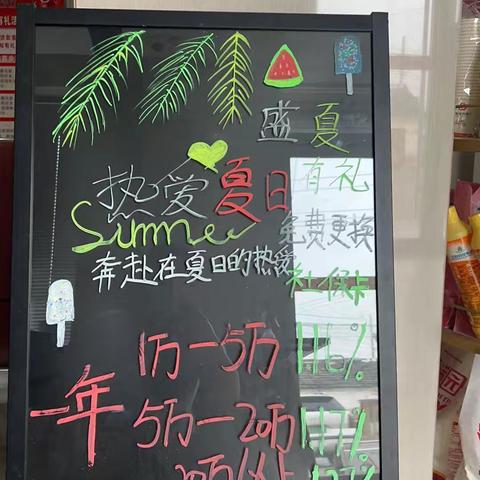 盛夏
有礼
热爱夏日
免费更换
Summer
奔赴在夏日的热爱
社保卡
1万一5万 1.16%
一年
5万一20万 1.17%
20万以上 1.27%